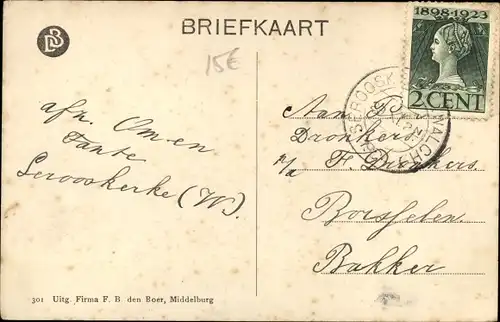 DB
BRIEFKAART
15€
1898-1923
2 CENT
afz. Om en
Tante
Serooskerke (W).
Aan
Dronkers
p/a F. Dronkers
Borsselen.
Bakker
301 Uitg. Firma F. B. den Boer, Middelburg